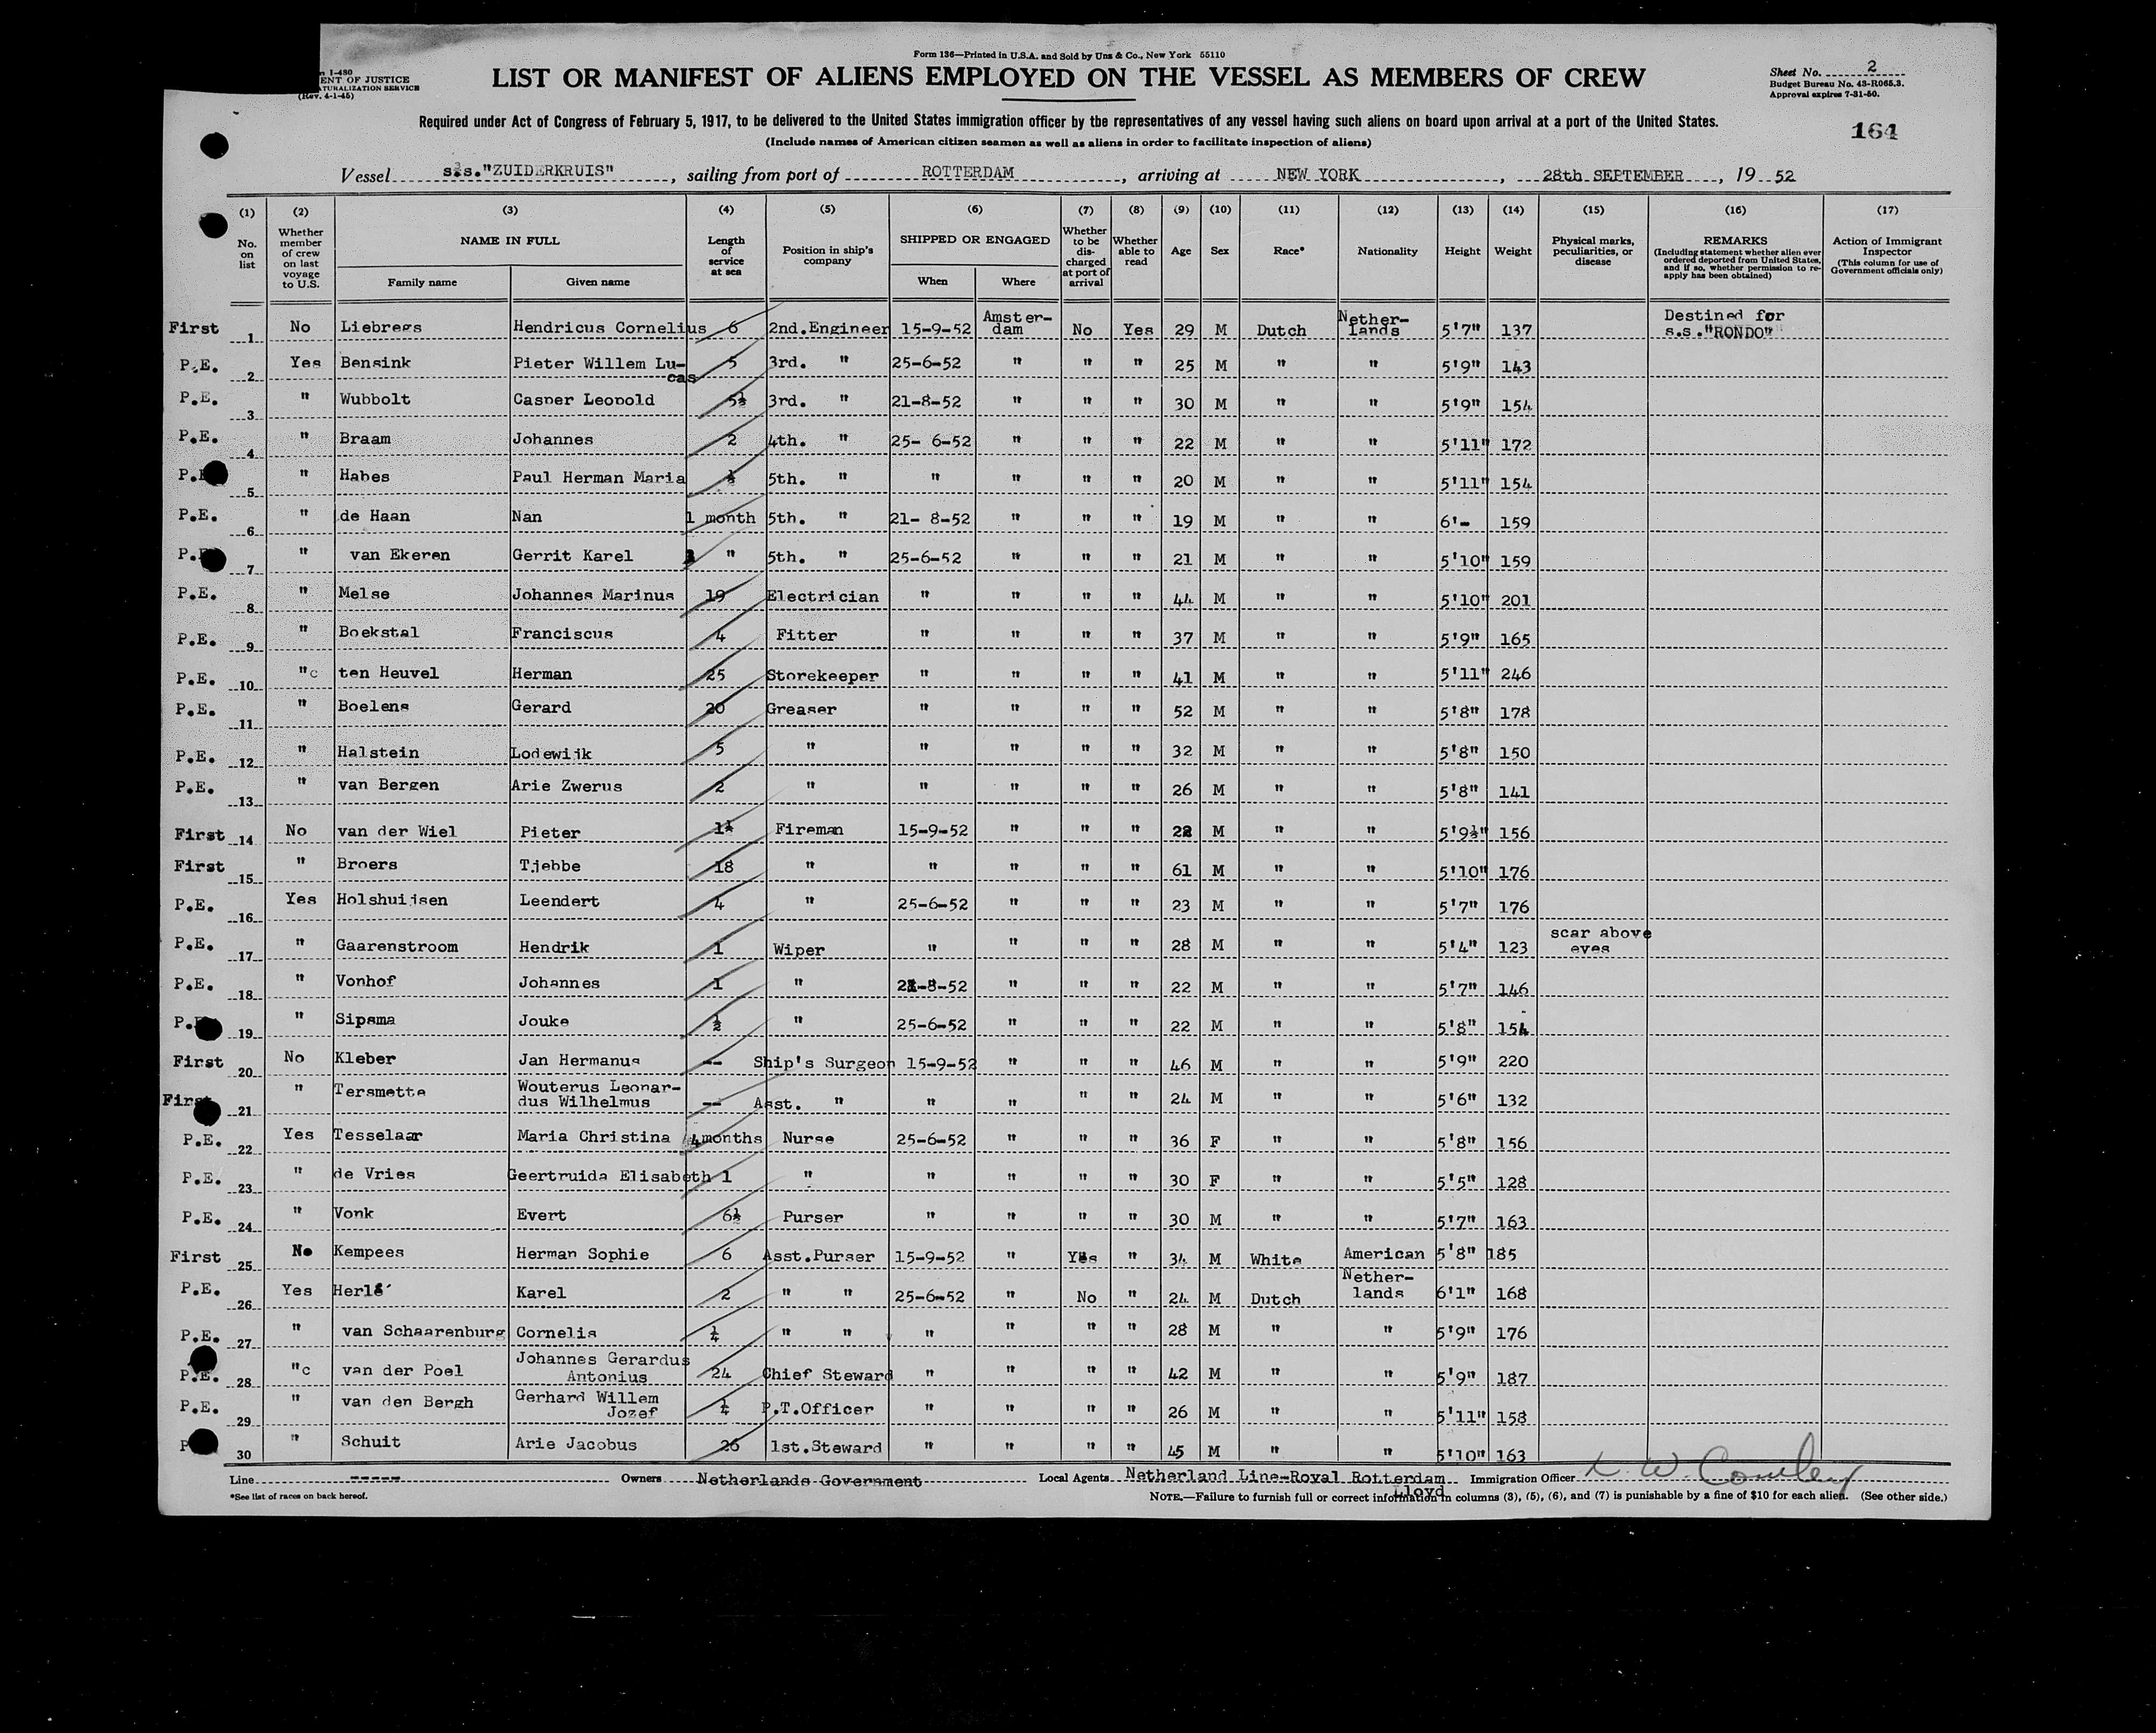 Form 136—Printed in U.S.A. and Sold by Unz & Co., New York 55110
1-480
ENT OF JUSTICE
TURALIZATION SERVICE
(Rev. 4-1-45)
LIST OR MANIFEST OF ALIENS EMPLOYED ON THE VESSEL AS MEMBERS OF CREW
Sheet No. 2
Budget Bureau No. 43-R065.3.
Approval expires 7-31-50.
Required under Act of Congress of February 5, 1917, to be delivered to the United States immigration officer by the representatives of any vessel having such aliens on board upon arrival at a port of the United States.
164
(Include names of American citizen seamen as well as aliens in order to facilitate inspection of aliens)
Vessel s.s."ZUIDERKRUIS", sailing from port of ROTTERDAM, arriving at NEW YORK, 28th SEPTEMBER, 1952
(1) (2) (3) (4) (5) (6) (7) (8) (9) (10) (11) (12) (13) (14) (15) (16) (17)
No. on list
Whether member of crew on last voyage to U.S.
NAME IN FULL
Family name
Given name
Length of service at sea
Position in ship's company
SHIPPED OR ENGAGED
When
Where
Whether to be discharged at port of arrival
Whether able to read
Age
Sex
Race*
Nationality
Height
Weight
Physical marks, peculiarities, or disease
REMARKS
(Including statement whether alien ever ordered deported from United States, and if so, whether permission to reapply has been obtained)
Action of Immigrant Inspector
(This column for use of Government officials only)
First 1 No Liebregs Hendricus Cornelius 6 2nd.Engineer 15-9-52 Amster-dam No Yes 29 M Dutch Nether-lands 5'7" 137 Destined for s.s."RONDO"
P.E. 2 Yes Bensink Pieter Willem Lu-cas 5 3rd. " 25-6-52 " " " 25 M " " 5'9" 143
P.E. 3 " Wubbolt Casper Leopold 5½ 3rd. " 21-8-52 " " " 30 M " " 5'9" 154
P.E. 4 " Braam Johannes 2 4th. " 25- 6-52 " " " 22 M " " 5'11" 172
P. 5 " Habes Paul Herman Maria 5th. " " " " " 20 M " " 5'11" 154
P.E. 6 " de Haan Nan 1 month 5th. " 21- 8-52 " " " 19 M " " 6'- 159
P. 7 " van Ekeren Gerrit Karel " 5th. " 25-6-52 " " " 21 M " " 5'10" 159
P.E. 8 " Melse Johannes Marinus 19 Electrician " " " " 44 M " " 5'10" 201
P.E. 9 " Boekstal Franciscus 4 Fitter " " " " 37 M " " 5'9" 165
P.E. 10 "c ten Heuvel Herman 25 Storekeeper " " " " 41 M " " 5'11" 246
P.E. 11 " Boelens Gerard 20 Greaser " " " " 52 M " " 5'8" 178
P.E. 12 " Halstein Lodewijk 5 " " " " " 32 M " " 5'8" 150
P.E. 13 " van Bergen Arie Zwerus 2 " " " " " 26 M " " 5'8" 141
First 14 No van der Wiel Pieter 1½ Fireman 15-9-52 " " " 22 M " " 5'9½" 156
First 15 " Broers Tjebbe 18 " " " " " 61 M " " 5'10" 176
P.E. 16 Yes Holshuijsen Leendert 4 " 25-6-52 " " " 23 M " " 5'7" 176
P.E. 17 " Gaarenstroom Hendrik 1 Wiper " " " " 28 M " " 5'4" 123 scar above eyes
P.E. 18 " Vonhof Johannes 1 " 21-8-52 " " " 22 M " " 5'7" 146
P. 19 " Sipsma Jouke ½ " 25-6-52 " " " 22 M " " 5'8" 154
First 20 No Kleber Jan Hermanus -- Ship's Surgeon 15-9-52 " " " 46 M " " 5'9" 220
First 21 " Tersmette Wouterus Leonar-dus Wilhelmus -- Asst. " " " " " 24 M " " 5'6" 132
P.E. 22 Yes Tesselaar Maria Christina 4months Nurse 25-6-52 " " " 36 F " " 5'8" 156
P.E. 23 " de Vries Geertruida Elisabeth 1 " " " " " 30 F " " 5'5" 128
P.E. 24 " Vonk Evert 6½ Purser " " " " 30 M " " 5'7" 163
First 25 No Kempees Herman Sophie 6 Asst.Purser 15-9-52 " Yes " 34 M White American 5'8" 185
P.E. 26 Yes Herlé Karel 2 " " 25-6-52 " No " 24 M Dutch Nether-lands 6'1" 168
P.E. 27 " van Schaarenburg Cornelis ¼ " " " " " " 28 M " " 5'9" 176
P.E. 28 "c van der Poel Johannes Gerardus Antonius 24 Chief Steward " " " " 42 M " " 5'9" 187
P.E. 29 " van den Bergh Gerhard Willem Jozef ¼ P.T.Officer " " " " 26 M " " 5'11" 158
P 30 " Schuit Arie Jacobus 26 1st.Steward " " " " 45 M " " 5'10" 163
Line ----- Owners Netherlands Government Local Agents Netherland Line-Royal Rotterdam Lloyd Immigration Officer
*See list of races on back hereof.
NOTE.—Failure to furnish full or correct information in columns (3), (5), (6), and (7) is punishable by a fine of $10 for each alien. (See other side.)